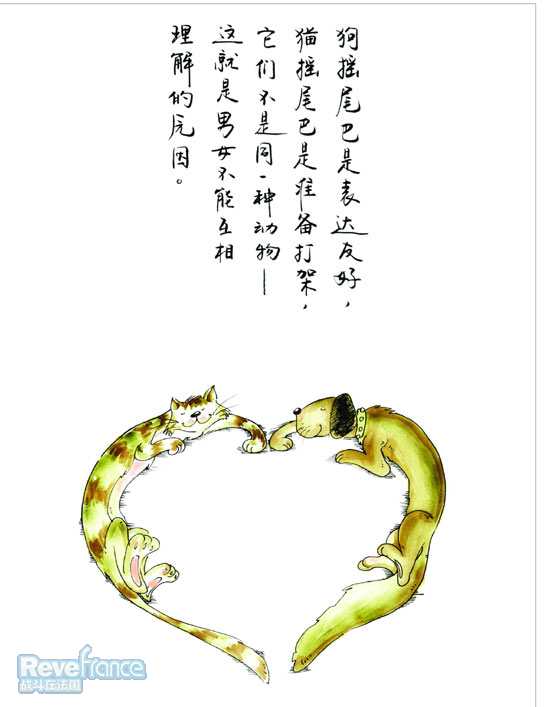 狗摇尾巴是表达友好，
猫摇尾巴是准备打架，
它们不是同一种动物—
这就是男女不能互相
理解的原因。
ReveFrance
战斗在法国